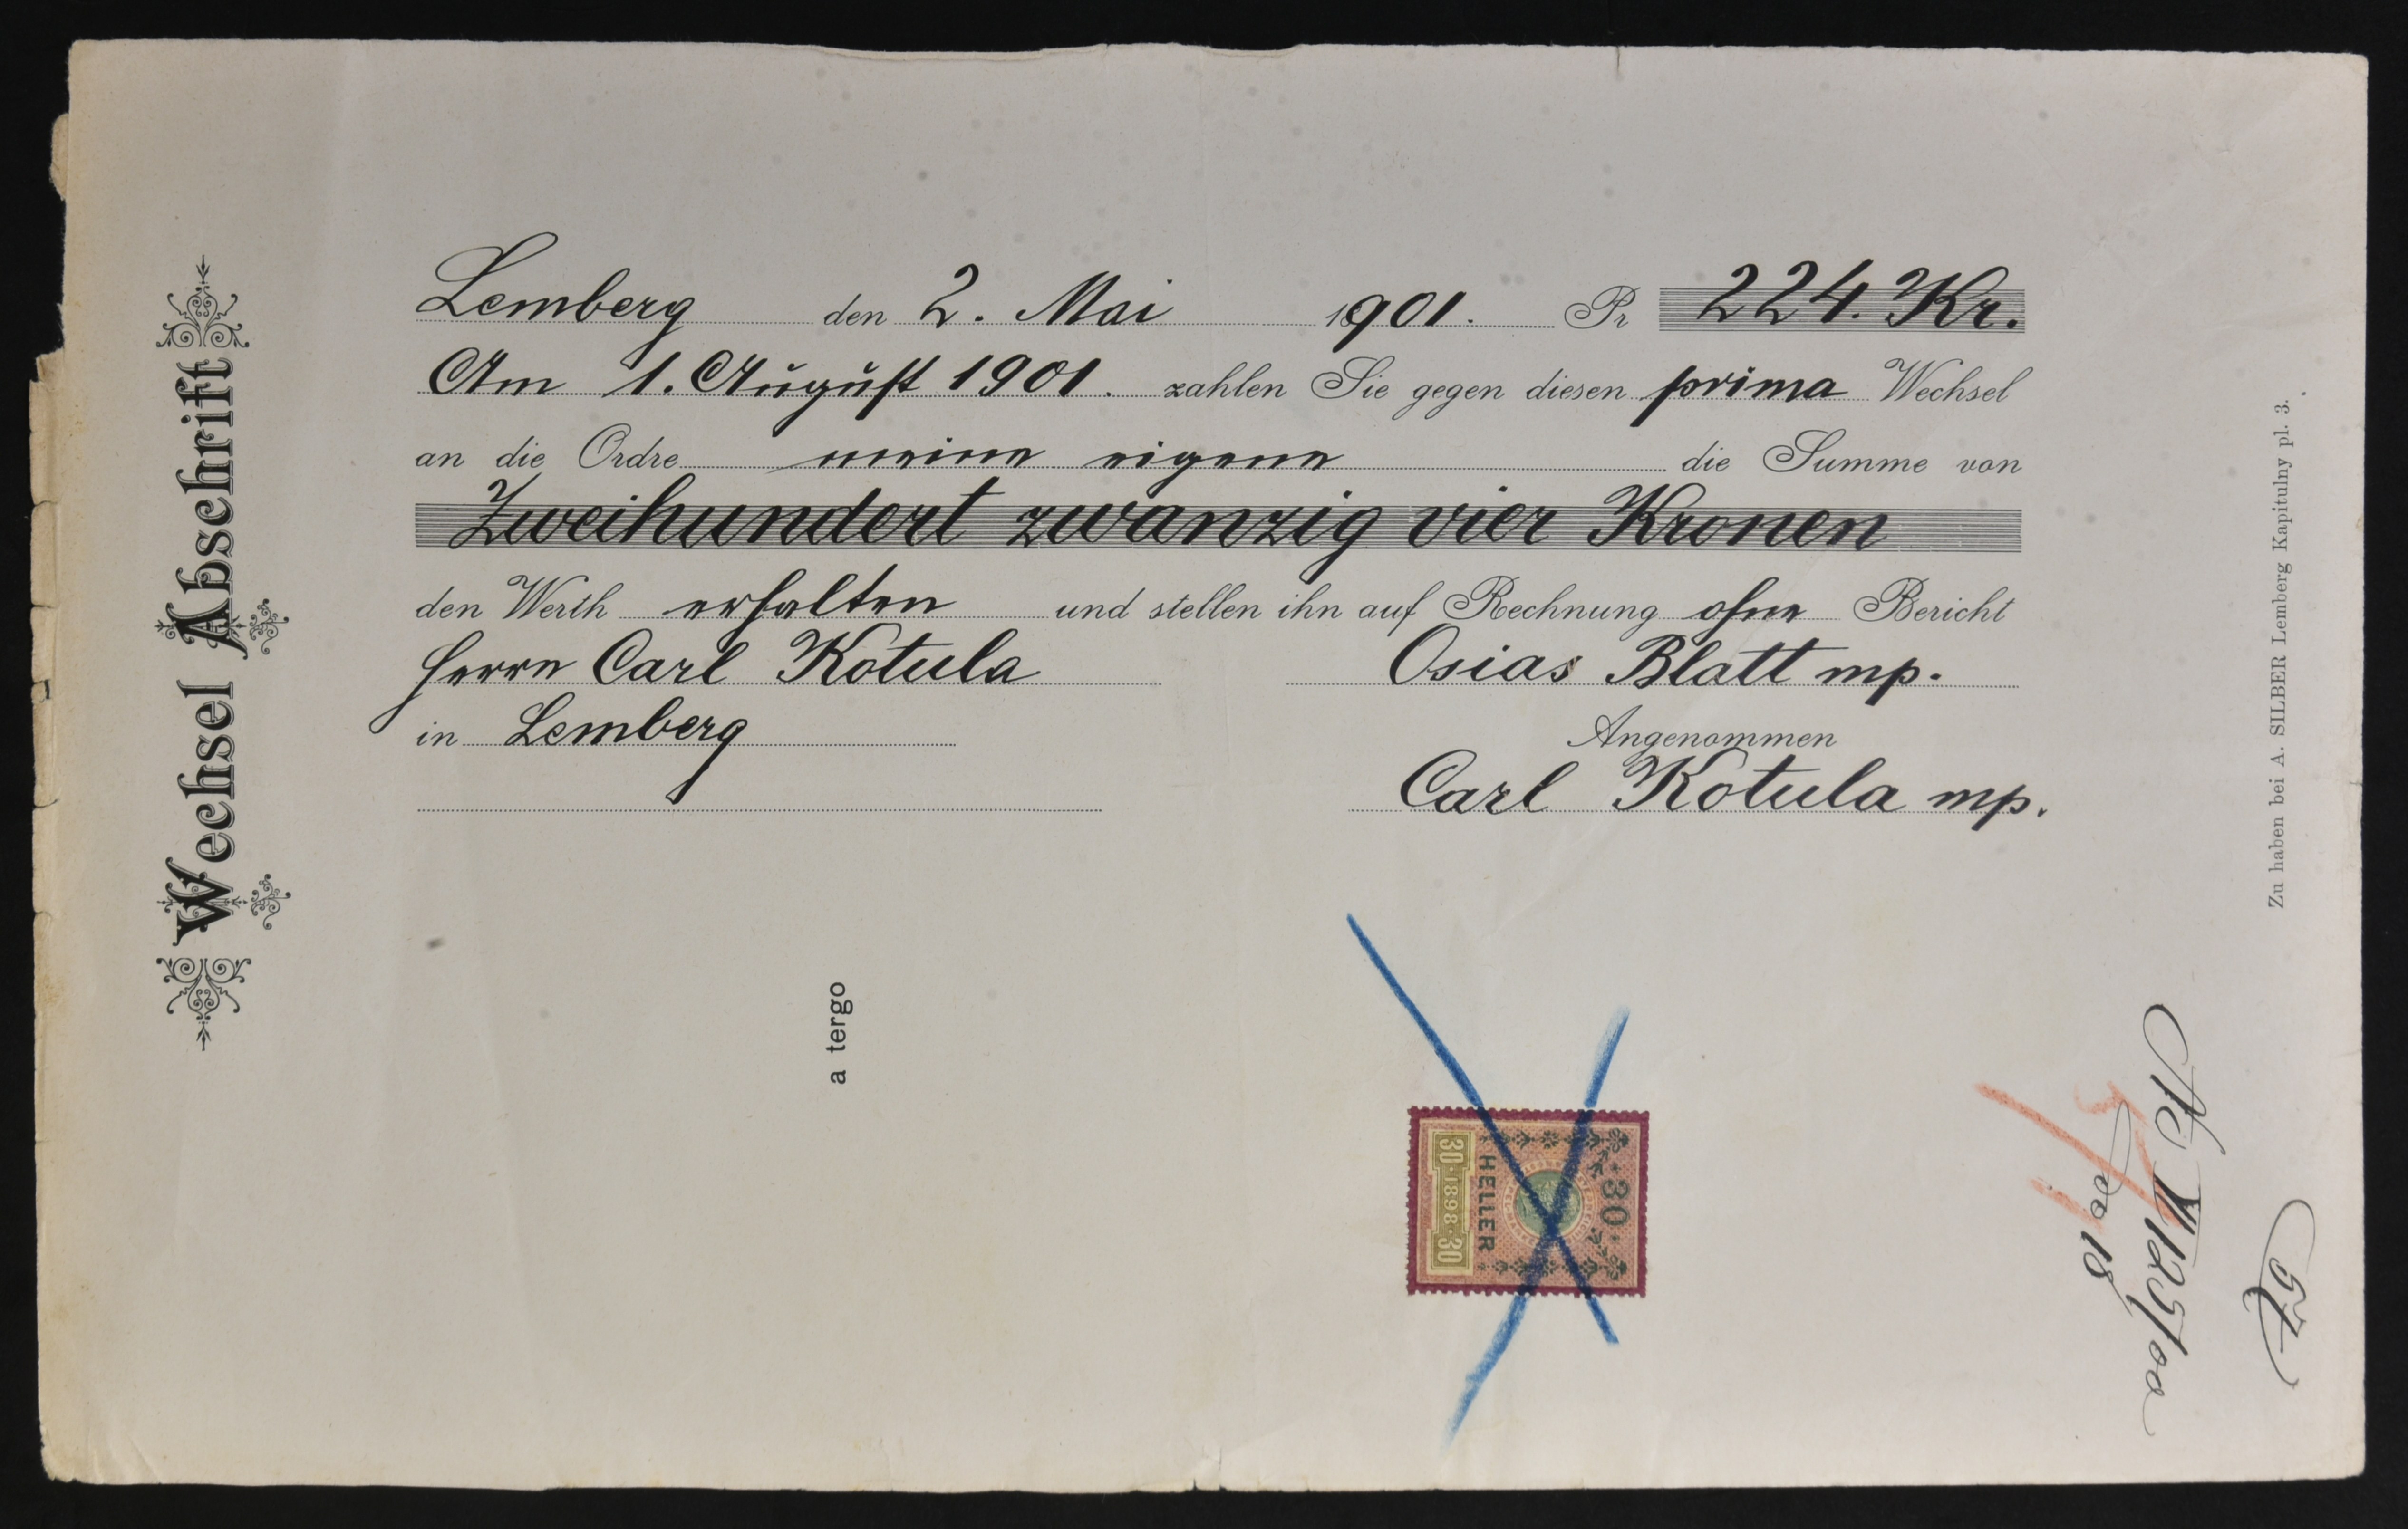 Wechsel Abschrift
Lemberg den 2. Mai 1901. Pr 224. Kr.
Am 1. August 1901. zahlen Sie gegen diesen prima Wechsel
an die Ordre meine eigene die Summe von
Zweihundert zwanzig vier Kronen
den Werth erhalten und stellen ihn auf Rechnung ohne Bericht
Herrn Carl Kotula Osias Blatt mp.
in Lemberg Angenommen
Carl Kotula mp.
a tergo
30
HELLER
30 1898 30
Zu haben bei A. SILBER Lemberg Kapitulny pl. 3.